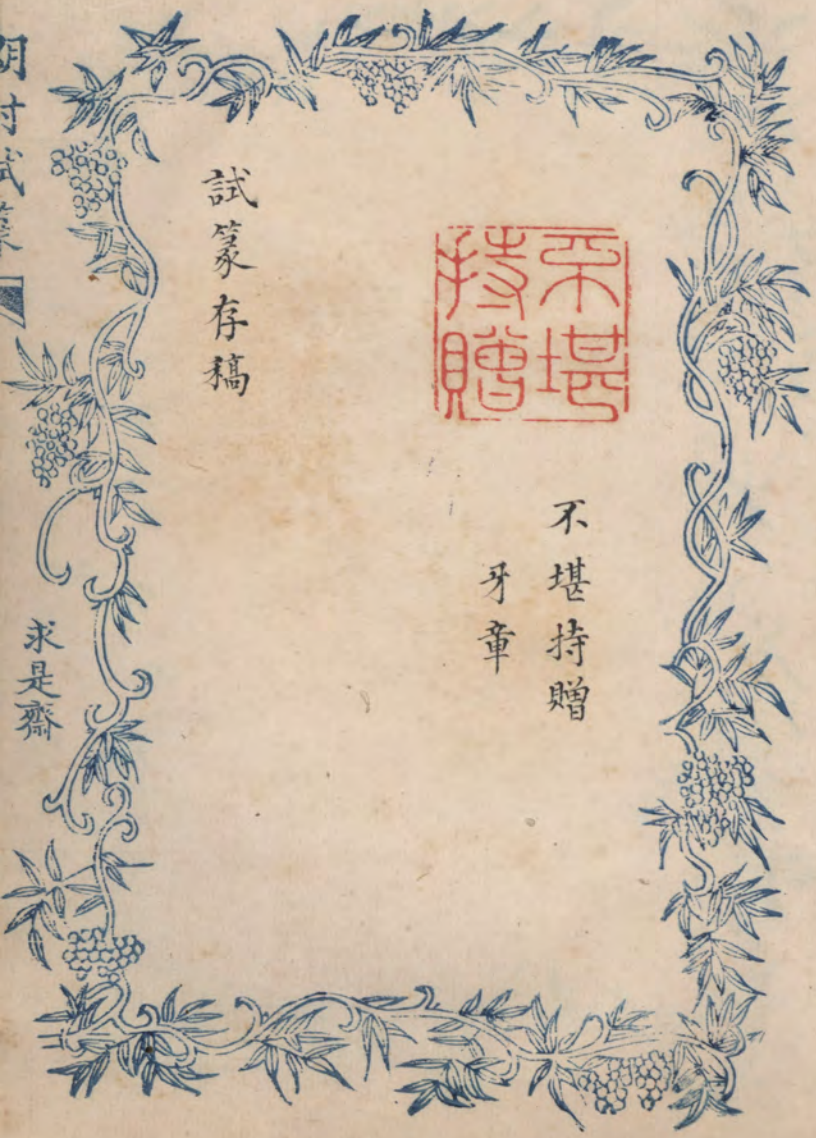 不堪持贈
不堪持贈
牙章
試篆存稿
求是齋